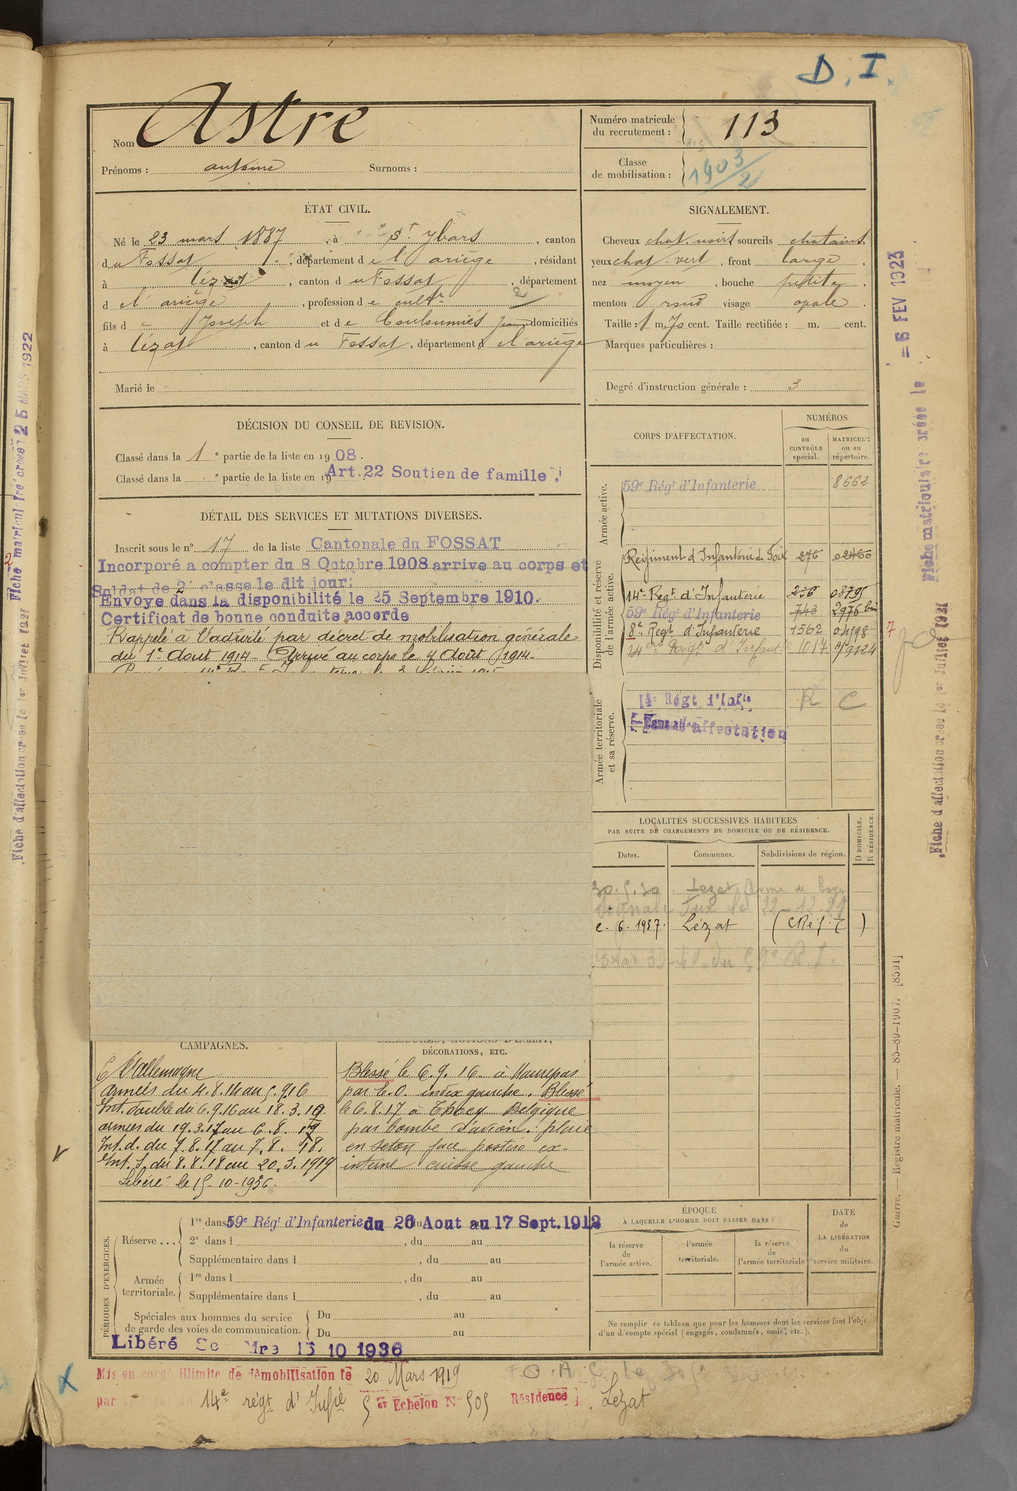 D. I.
Nom Astre
Prénoms : antoine Surnoms :
Numéro matricule du recrutement : 113
Classe de mobilisation : 1903/2
ÉTAT CIVIL.
Né le 23 mars 1887, à St Ybars, canton
du Fossat, département de l'ariège, résidant
à Lézat, canton du Fossat, département
d l'ariège, profession de cultr
fils de Joseph et de Coulsumiés domiciliés
à Lézat, canton du Fossat, département d l'ariège
Marié le
SIGNALEMENT.
Cheveux chat. noirs sourcils chatains
yeux chat. vert, front large
nez moyen, bouche petite
menton rond visage opale
Taille : 1 m. 70 cent. Taille rectifiée : m. cent.
Marques particulières :
Degré d'instruction générale : 3
DÉCISION DU CONSEIL DE REVISION.
Classé dans la 1e partie de la liste en 1908.
Classé dans la e partie de la liste en 19 Art. 22 Soutien de famille
DÉTAIL DES SERVICES ET MUTATIONS DIVERSES.
Inscrit sous le n° 17 de la liste Cantonale du FOSSAT
Incorporé a compter du 8 Octobre 1908 arrive au corps et
Soldat de 2e classe le dit jour.
Envoye dans la disponibilité le 25 Septembre 1910.
Certificat de bonne conduite accorde
Rappelé à l'activité par décret de mobilisation générale
du 1er Aout 1914. Arrivé au corps le 4 Août 1914.
CORPS D'AFFECTATION.
NUMÉROS
au CONTRÔLE spécial.
MATRICULE ou au répertoire.
Armée active.
59e Régt d'Infanterie 8662
Disponibilité et réserve de l'armée active.
Régiment d'Infanterie de Foix 276 02460
14e Régt d'Infanterie 256 08795
59e Régt d'Infanterie 743 2976 bis
8e Régt d'Infanterie 1562 04198
14e Régt d'Infant 1017
Armée territoriale et sa réserve.
14e Régt d'Infie R C
Sans affectation
LOCALITÉS SUCCESSIVES HABITÉES
PAR SUITE DE CHANGEMENTS DE DOMICILE OU DE RÉSIDENCE.
Dates. Communes. Subdivisions de région. D DOMICILE. R RÉSIDENCE.
Lezat
6. 1937. Lézat
CAMPAGNES.
C. Allemagne
Armées du 4.8.14 au 5.9.16
Int. double du 6.9.16 au 18.3.19
armées du 19.3.17 au 6.8.17
Int. d. du 7.8.17 au 7.8.18.
Int. s. du 8.8.18 au 20.3.1919
Libéré le 15-10-1936.
DÉCORATIONS, ETC.
Blessé le 6.9.16 à Maurepas
par E.O. index gauche. Blessé
le 6.8.17 à Belgique
par bombe d'avion. plaie
en seton face postéro ex-
interne cuisse gauche
PÉRIODES D'EXERCICES.
Réserve
1re dans 59e Régt d'Infanterie du 26 Aout au 17 Sept. 1912
2e dans l , du au
Supplémentaire dans l , du au
Armée territoriale.
1re dans l , du au
Supplémentaire dans l , du au
Spéciales aux hommes du service de garde des voies de communication.
Du au
Du au
Libéré 15 10 1936
ÉPOQUE
À LAQUELLE L'HOMME DOIT PASSER DANS :
la réserve de l'armée active.
l'armée territoriale.
la réserve de l'armée territoriale
DATE de LA LIBÉRATION du service militaire.
Ne remplir ce tableau que pour les hommes dont les services font l'objet
d'un compte spécial (engagés, condamnés, omis, etc.).
Mis en congé illimité de démobilisation le 20 Mars 1919
par 14e régt d'Infie 5 et Echelon N° 505 Résidence Lézat
Fiche matriculaire créée le - 5 FEV 1923
Fiche d'affectation créée le 1er Juillet 1921
Guerre. — Registre matricule. — 85-89-1907. [8591]
Fiche matriculaire créée 25 MARS 1922
Fiche d'affectation créée le 1er Juillet 1921